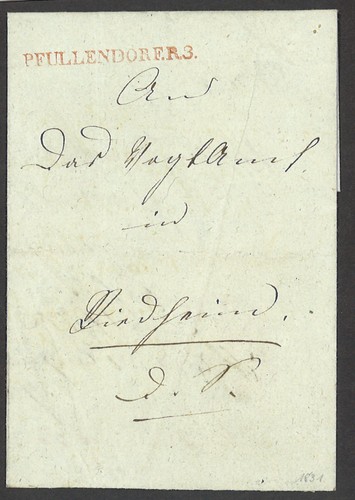 PFULLENDORF.R.3.
An
Das Vogtamt
in
Riedheim.
d. S.
1831